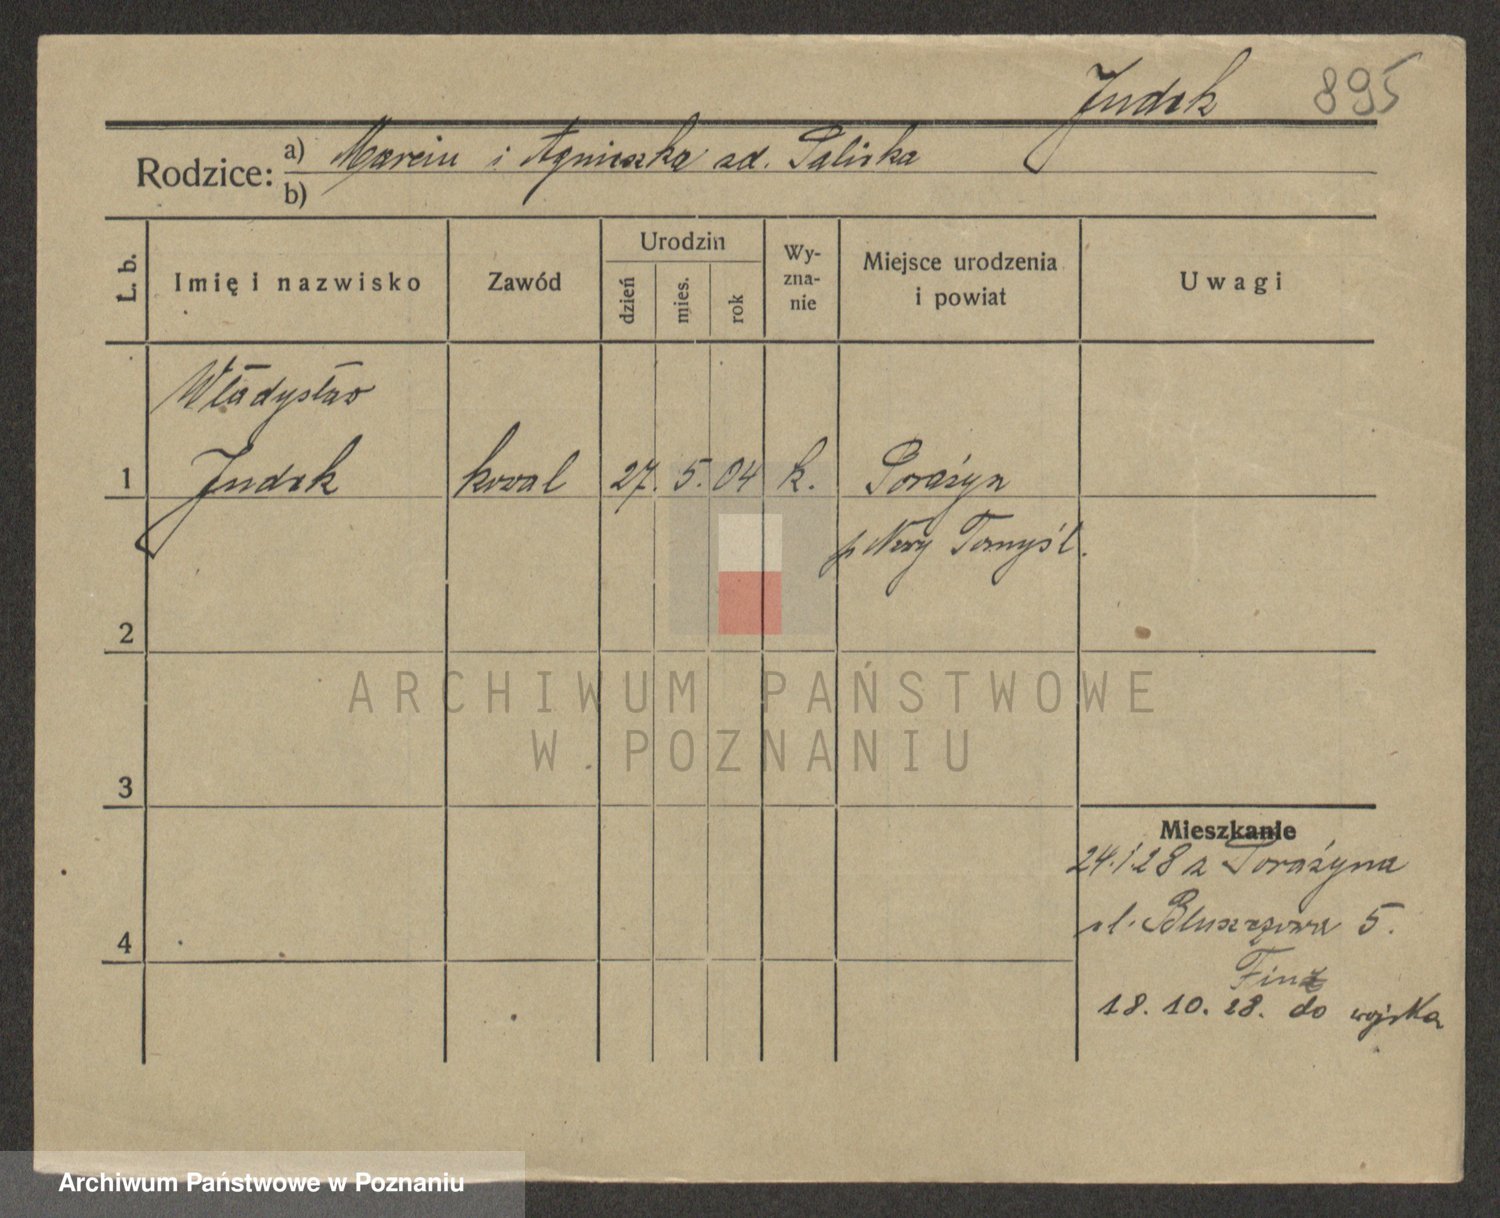 Judek 895
Rodzice: a) Marcin i Agnieszka zd. Saliska
b)
L. b. Imię i nazwisko Zawód Urodzin dzień mies. rok Wy-zna-nie Miejsce urodzenia i powiat Uwagi
Władysław
1 Judek kowal 27. 5. 04 k. Porażyn
p Nowy Tomyśl.
2
3
Mieszkanie
24.1.28 z Porażyna
ul. Bluszczowa 5.
4
18. 10. 28. do wojska
ARCHIWUM PAŃSTWOWE
W POZNANIU
Archiwum Państwowe w Poznaniu